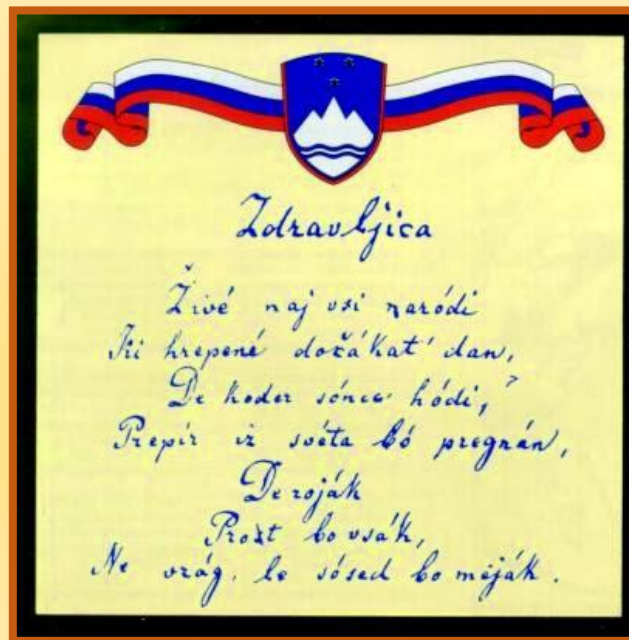 Zdravljica
Živé naj vsi naródi
Ki hrepené dočákat' dan,
De koder sónce hódi,
Prepír iz svéta bó pregnán,
De roják
Prost bo vsák,
Ne vrág, le sósed bo moják.